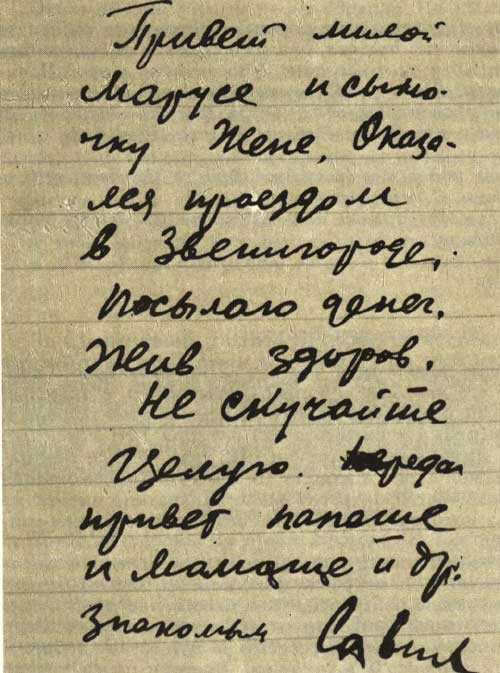 Привет милой
Марусе и сыно-
чку Жене, Оказа-
лся проездом
в Звенигороде,
посылаю денег.
Жив здоров.
Не скучайте
Целую. Передай
привет папаше
и мамаше и др.
знакомым Савил